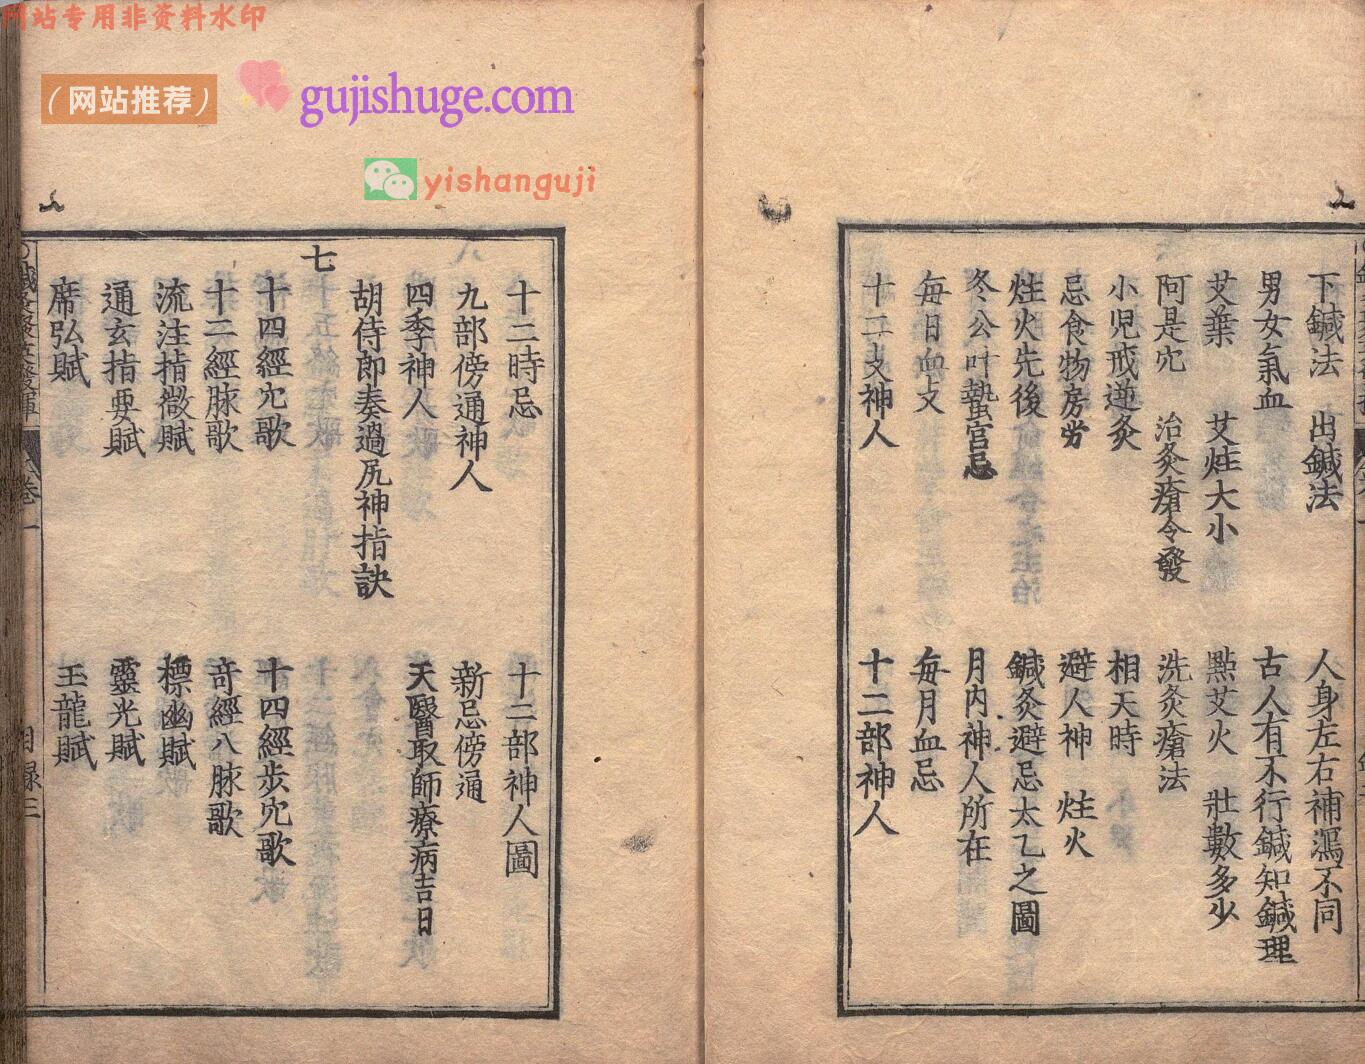 网站专用非资料水印
（网站推荐）
gujishuge.com
yishanguji
下鍼法　出鍼法　人身左右補瀉不同
男女氣血　古人有不行鍼知鍼理
艾葉　艾炷大小　點艾火　壯數多少
阿是穴　治灸瘡令發　洗灸瘡法
小児戒逆灸　相天時
忌食物房労　避人神　炷火
炷火先後　鍼灸避忌太乙之圖
冬公叶蟄宮忌　月內神人所在
每日血支　每月血忌
十二支神人　十二部神人
十二時忌　十二部神人圖
九部傍通神人　新忌傍通
四季神人　天醫取師療病吉日
胡侍郎奏過尻神指訣
七
十四經穴歌　十四經步穴歌
十二經脉歌　奇經八脉歌
流注指微賦　標幽賦
通玄指要賦　靈光賦
席弘賦　玉龍賦
卷一
目錄三